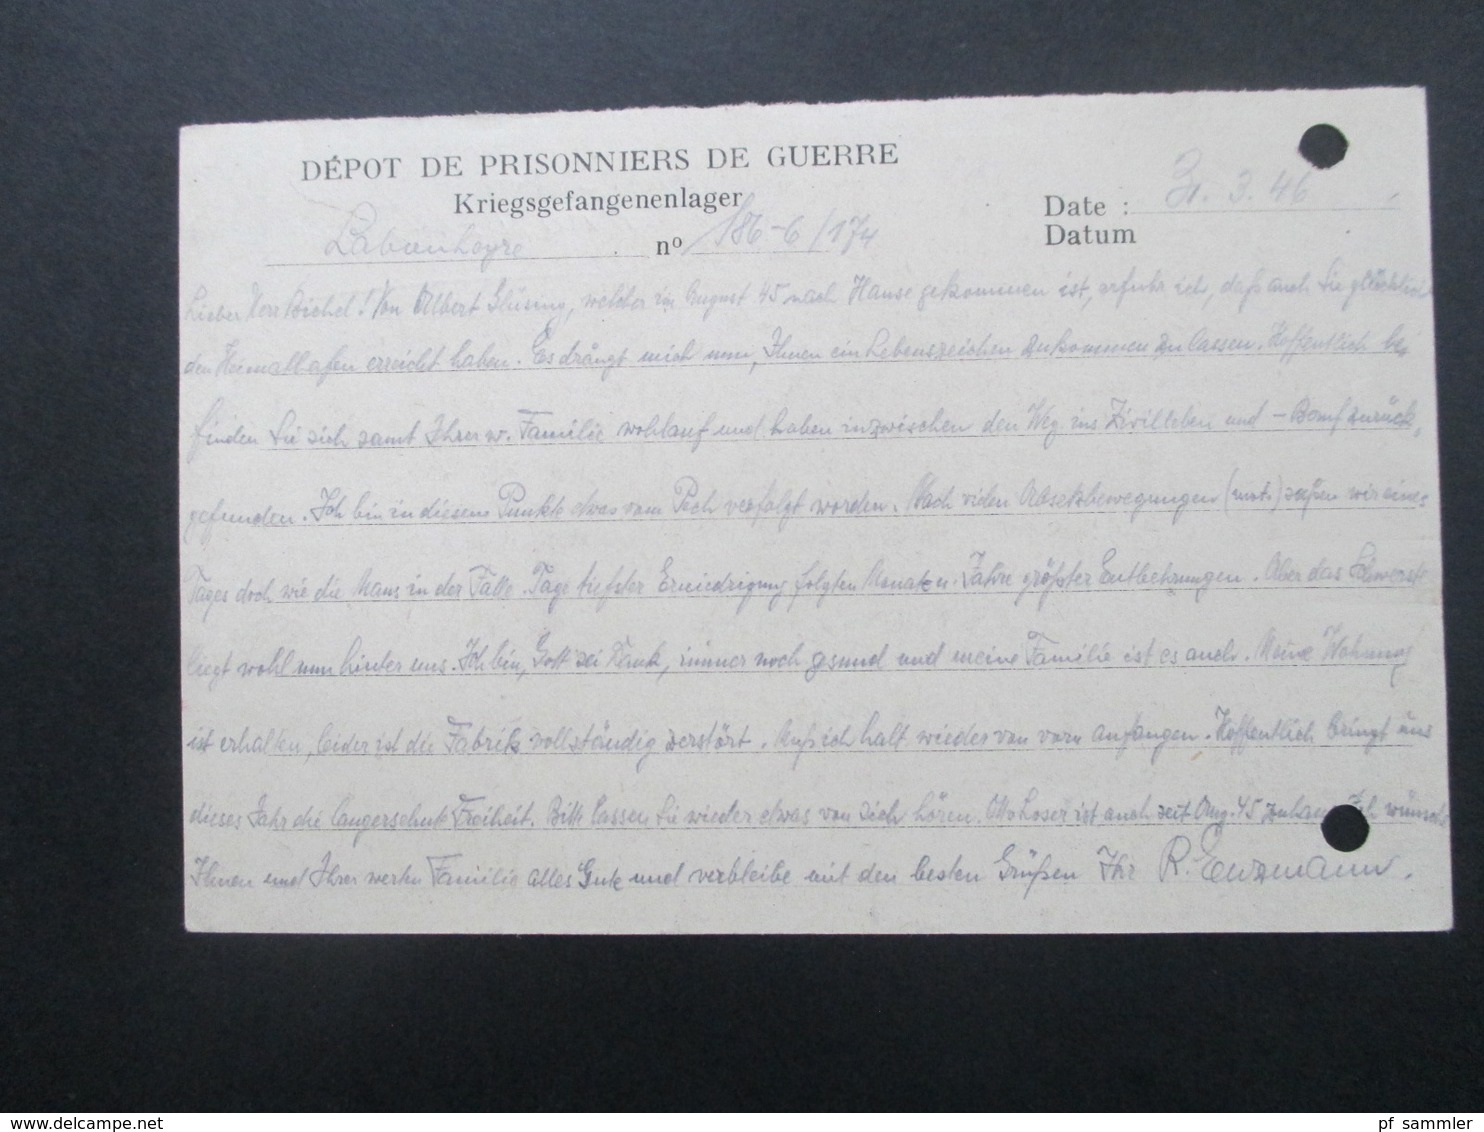 DÉPOT DE PRISONNIERS DE GUERRE
Kriegsgefangenenlager
Date : 3. 46
Labouheyre nº 186-6/174
Datum
Lieber Herr ! Von Albert Glüsing, welcher im August 45 nach Hause gekommen ist, erfuhr ich, daß auch Sie glücklich
den Heimathafen erreicht haben. Es drängt mich nun, Ihnen ein Lebenszeichen zukommen zu lassen. Hoffentlich be-
finden Sie sich samt Ihrer w. Familie wohlauf und haben inzwischen den Weg ins Zivilleben und - Beruf zurück-
gefunden. Ich bin in diesem Punkte etwas vom Pech verfolgt worden. Nach vielen Absetzbewegungen saßen wir eines
Tages doch wie die Maus in der Falle. Tage tiefster Erniedrigung folgten Monate u. Jahre größter Entbehrungen. Aber das Schwerste
liegt wohl nun hinter uns. Ich bin, Gott sei Dank, immer noch gesund und meine Familie ist es auch. Meine Wohnung
ist erhalten, leider ist die Fabrik vollständig zerstört. Muß ich halt wieder von vorn anfangen. Hoffentlich bringt uns
dieses Jahr die langersehnte Freiheit. Bitte lassen Sie wieder etwas von sich hören. Otto Loser ist auch seit Aug. 45 zuhause. Ich wünsche
Ihnen und Ihrer werten Familie alles Gute und verbleibe mit den besten Grüßen Ihr R. Enzmann.
© delcampe.net
pf_sammler